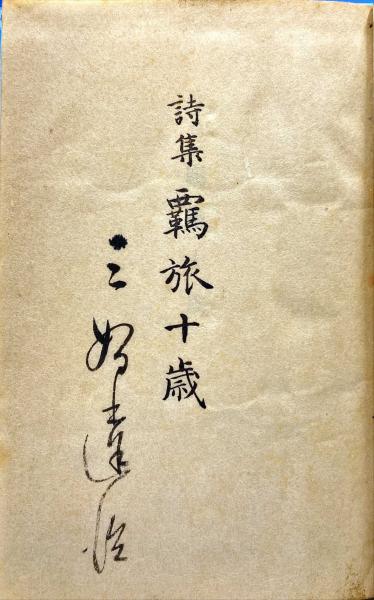 詩集 羈旅十歳
三好達治